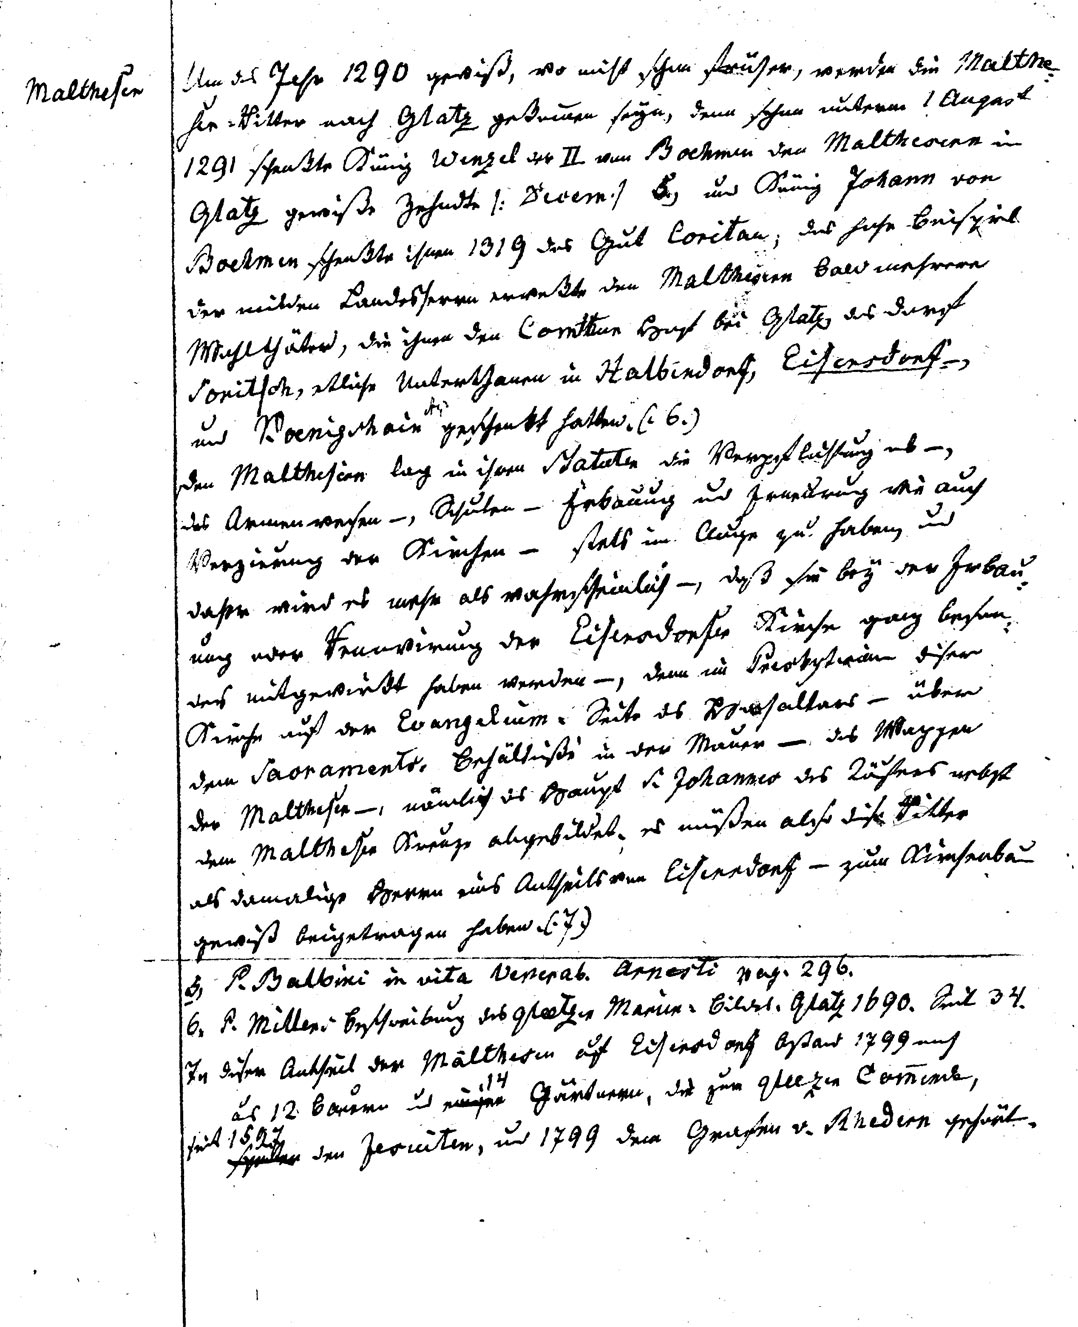 Malthesen
Um das Jahr 1290 gewiß, wo nicht schon früher, werden die Malthe-
ser-Ritter nach Glatz gekommen seyn, denn schon unterm 1 August
1291 schenkte König Wenzel der II von Boehmen den Malthesern in
Glatz gewiße Zehndte /: Decem :/ 5, und König Johann von
Boehmen schenkte ihnen 1319 das Gut Coritau; das hohe Beispiel
der milden Landesherrn erwekte den Malthesern bald mehrere
Wohlthäter, die ihnen den Hof bei Glatz, das Dorf
Soritsch, etliche Unterthanen in Halbendorf, Eisersdorf-,
und Koenigshain geschenkt hatten. (: 6.)
Den Malthesern lag in ihren Statuten die Verpflichtung ob -,
das Armenwesen -, Schulen - Erbauung und Erneurung wie auch
Verzierung der Kirchen - stets im Auge zu haben, und
daher wird es mehr als wahrscheinlich -, daß sie bey der Erbau-
ung oder Renovirung der Eisersdorfer Kirche ganz beson-
ders mitgewirkt haben werden -, denn im Presbyterium diser
Kirche auf der Evangelium-Seite des Hochaltars - über
dem Sacraments-Behältniße in der Mauer - das Wappen
der Maltheser -, nämlich das Haupt S. Johannes des Täufers nebst
dem Maltheser Kreuze abgebildet, es müßen also dise Ritter
als damalige Herrn eines Antheils von Eisersdorf - zum Kirchenbau
gewiß beigetragen haben. (: 7.)
5, P. Balbini in vita Venerab. Arnesti pag. 296.
6. P. Millers Beschreibung des glatzer Marien-Bildes. Glatz 1690. Seit 34.
7, diser Antheil der Malthesen auf Eisersdorf bestand 1799 noch
aus 12 Bauern und 14 Gärtnern, die zur glatzer Commende,
seit 1597 den Jesuiten, und 1799 dem Grafen v. Rhedern gehört.